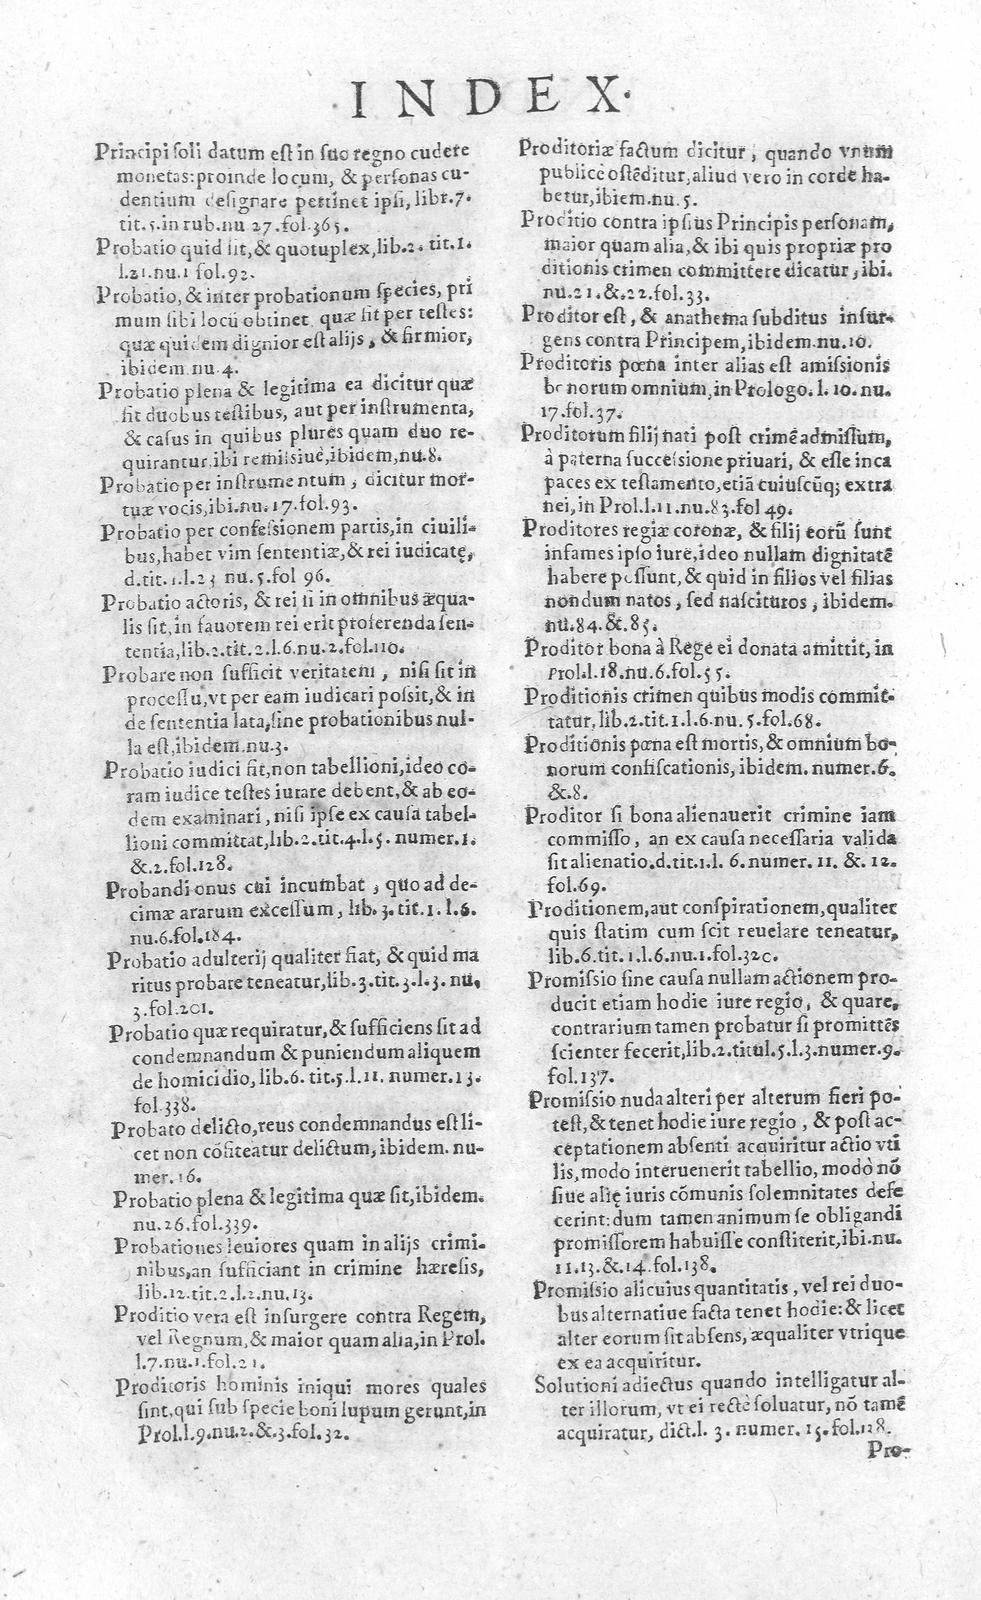 INDEX.
Principi soli datum est in suo regno cudere
monetas: proinde locum, & personas cu-
dentium designare pertinet ipsi, libr. 7.
tit. 5. in rub. nu 27. fol. 365.
Probatio quid sit, & quotuplex, lib. 2. tit. 1.
l. 21. nu. 1 fol. 92.
Probatio, & inter probationum species, pri
mum sibi locũ obtinet quæ sit per testes:
quæ quidem dignior est alijs, & firmior,
ibidem nu. 4.
Probatio plena & legitima ea dicitur quæ
fit duobus testibus, aut per instrumenta,
& casus in quibus plures quam duo re-
quirantur, ibi remissiuè, ibidem, nu. 8.
Probatio per instrumentum, dicitur mor-
tuæ vocis, ibi. nu. 17. fol. 93.
Probatio per confessionem partis, in ciuili-
bus, habet vim sententiæ, & rei iudicatę,
d. tit. 1. l. 23 nu. 5. fol 96.
Probatio actoris, & rei si in omnibus æqua-
lis sit, in fauorem rei erit proferenda sen-
tentia, lib. 2. tit. 2. l. 6. nu. 2. fol. 110.
Probare non sufficit veritatem, nisi sit in
processu, vt per eam iudicari possit, & in
de sententia lata, sine probationibus nul-
la est, ibidem. nu. 3.
Probatio iudici fit, non tabellioni, ideo co-
ram iudice testes iurare debent, & ab eo-
dem examinari, nisi ipse ex causa tabel-
lioni committat, lib. 2. tit. 4. l. 5. numer. 1.
&. 2. fol. 128.
Probandi onus cui incumbat, quo ad de-
cimæ ararum excessum, lib. 3. tit. 1. l. 6.
nu. 6. fol. 184.
Probatio adulterij qualiter fiat, & quid ma
ritus probare teneatur, lib. 3. tit. 3. l. 3. nu.
3. fol. 201.
Probatio quæ requiratur, & sufficiens sit ad
condemnandum & puniendum aliquem
de homicidio, lib. 6. tit. 5. l. 11. numer. 13.
fol. 338.
Probato delicto, reus condemnandus est li-
cet non cõfiteatur delictum, ibidem. nu-
mer. 16.
Probatio plena & legitima quæ sit, ibidem.
nu. 26. fol. 339.
Probationes leuiores quam in alijs crimi-
nibus, an sufficiant in crimine hæresis,
lib. 12. tit. 2. l. 2. nu. 13.
Proditio vera est insurgere contra Regem,
vel Regnum, & maior quam alia, in Prol.
l. 7. nu. 1. fol. 21.
Proditoris hominis iniqui mores quales
sint, qui sub specie boni lupum gerunt, in
Prol. l. 9. nu. 2. &. 3. fol. 32.
Proditoriæ factum dicitur, quando vnum
publicè ostẽditur, aliud vero in corde ha-
betur, ibiem. nu. 5.
Proditio contra ipsius Principis personam,
maior quam alia, & ibi quis propriæ pro
ditionis crimen committere dicatur, ibi.
nu. 21. &. 22. fol. 33.
Proditor est, & anathema subditus insur-
gens contra Principem, ibidem. nu. 10.
Proditoris pœna inter alias est amissionis
bonorum omnium, in Prologo. l. 10. nu.
17. fol. 37.
Proditorum filij nati post crimẽ admissum,
à paterna successione priuari, & esse inca
paces ex testamento, etiã cuiuscũq; extra
nei, in Prol. l. 11. nu. 83. fol 49.
Proditores regiæ coronæ, & filij eorũ sunt
infames ipso iure, ideo nullam dignitatẽ
habere possunt, & quid in filios vel filias
nondum natos, sed nascituros, ibidem.
nu. 84. &. 85.
Proditor bona à Rege ei donata amittit, in
Prol. l. 18. nu. 6. fol. 55.
Proditionis crimen quibus modis commit-
tatur, lib. 2. tit. 1. l. 6. nu. 5. fol. 68.
Proditionis pœna est mortis, & omnium bo-
norum confiscationis, ibidem. numer. 6.
&. 8.
Proditor si bona alienauerit crimine iam
commisso, an ex causa necessaria valida
sit alienatio. d. tit. 1. l. 6. numer. 11. &. 12.
fol. 69.
Proditionem, aut conspirationem, qualiter
quis statim cum scit reuelare teneatur,
lib. 6. tit. 1. l. 6. nu. 1. fol. 320.
Promissio sine causa nullam actionem pro-
ducit etiam hodie iure regio, & quare,
contrarium tamen probatur si promittẽs
scienter fecerit, lib. 2. titul. 5. l. 3. numer. 9.
fol. 137.
Promissio nuda alteri per alterum fieri po-
test, & tenet hodie iure regio, & post ac-
ceptationem absenti acquiritur actio vti
lis, modo interuenerit tabellio, modò nõ
siue alię iuris cõmunis solemnitates defe
cerint: dum tamen animum se obligandi
promissorem habuisse constiterit, ibi. nu.
11. 13. &. 14. fol. 138.
Promissio alicuius quantitatis, vel rei duo-
bus alternatiue facta tenet hodie: & licet
alter eorum sit absens, æqualiter vtrique
ex ea acquiritur.
Solutioni adiectus quando intelligatur al-
ter illorum, vt ei rectè soluatur, nõ tamẽ
acquiratur, dict. l. 3. numer. 15. fol. 128.
Pro-